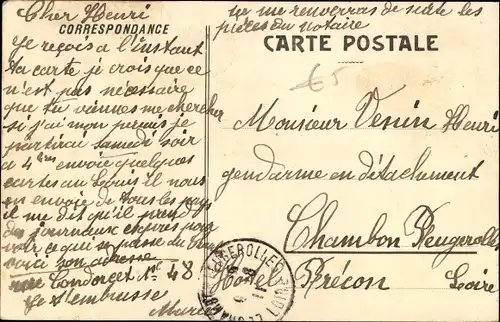 tu me renverras de suite les
pièces du notaire
Cher Henri
CORRESPONDANCE
CARTE POSTALE
65
Je reçois à l'instant
ta carte je crois que ce
n'est pas nécessaire
que tu viennes me chercher
si j'ai mon permis je
partirai samedi soir
à 4 envoie quelques
cartes au Louis il nous
en envoie de tous les pays
il me dit qu'il prend
des journaux exprès pour
voir ce qui se passe du
voici son adresse
rue Condorcet N° 48
Je t'embrasse
Marie
Monsieur Venin Henri
gendarme en détachement
Chambon Feugerolles
Hôtel Précon Loire
FEUGEROLLES LOIRE